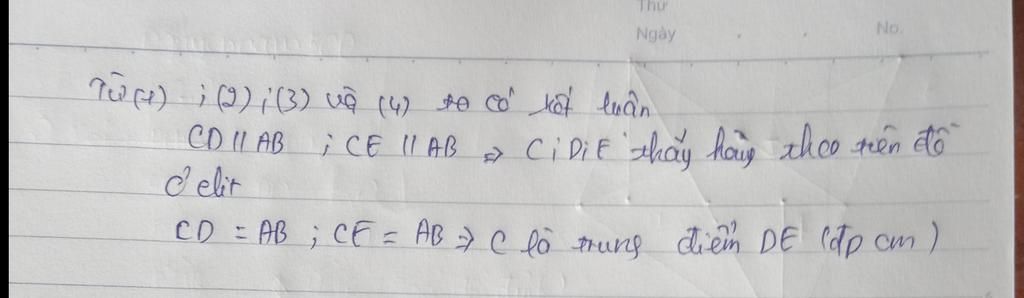 Thứ
Ngày No.
Từ (1) ; (2) ; (3) và (4) ta có kết luận
CD // AB ; CE // AB ⇒ C ; D ; E thẳng hàng theo tiên đề
Ơ clit
CD = AB ; CE = AB ⇒ C là trung điểm DE (đpcm)